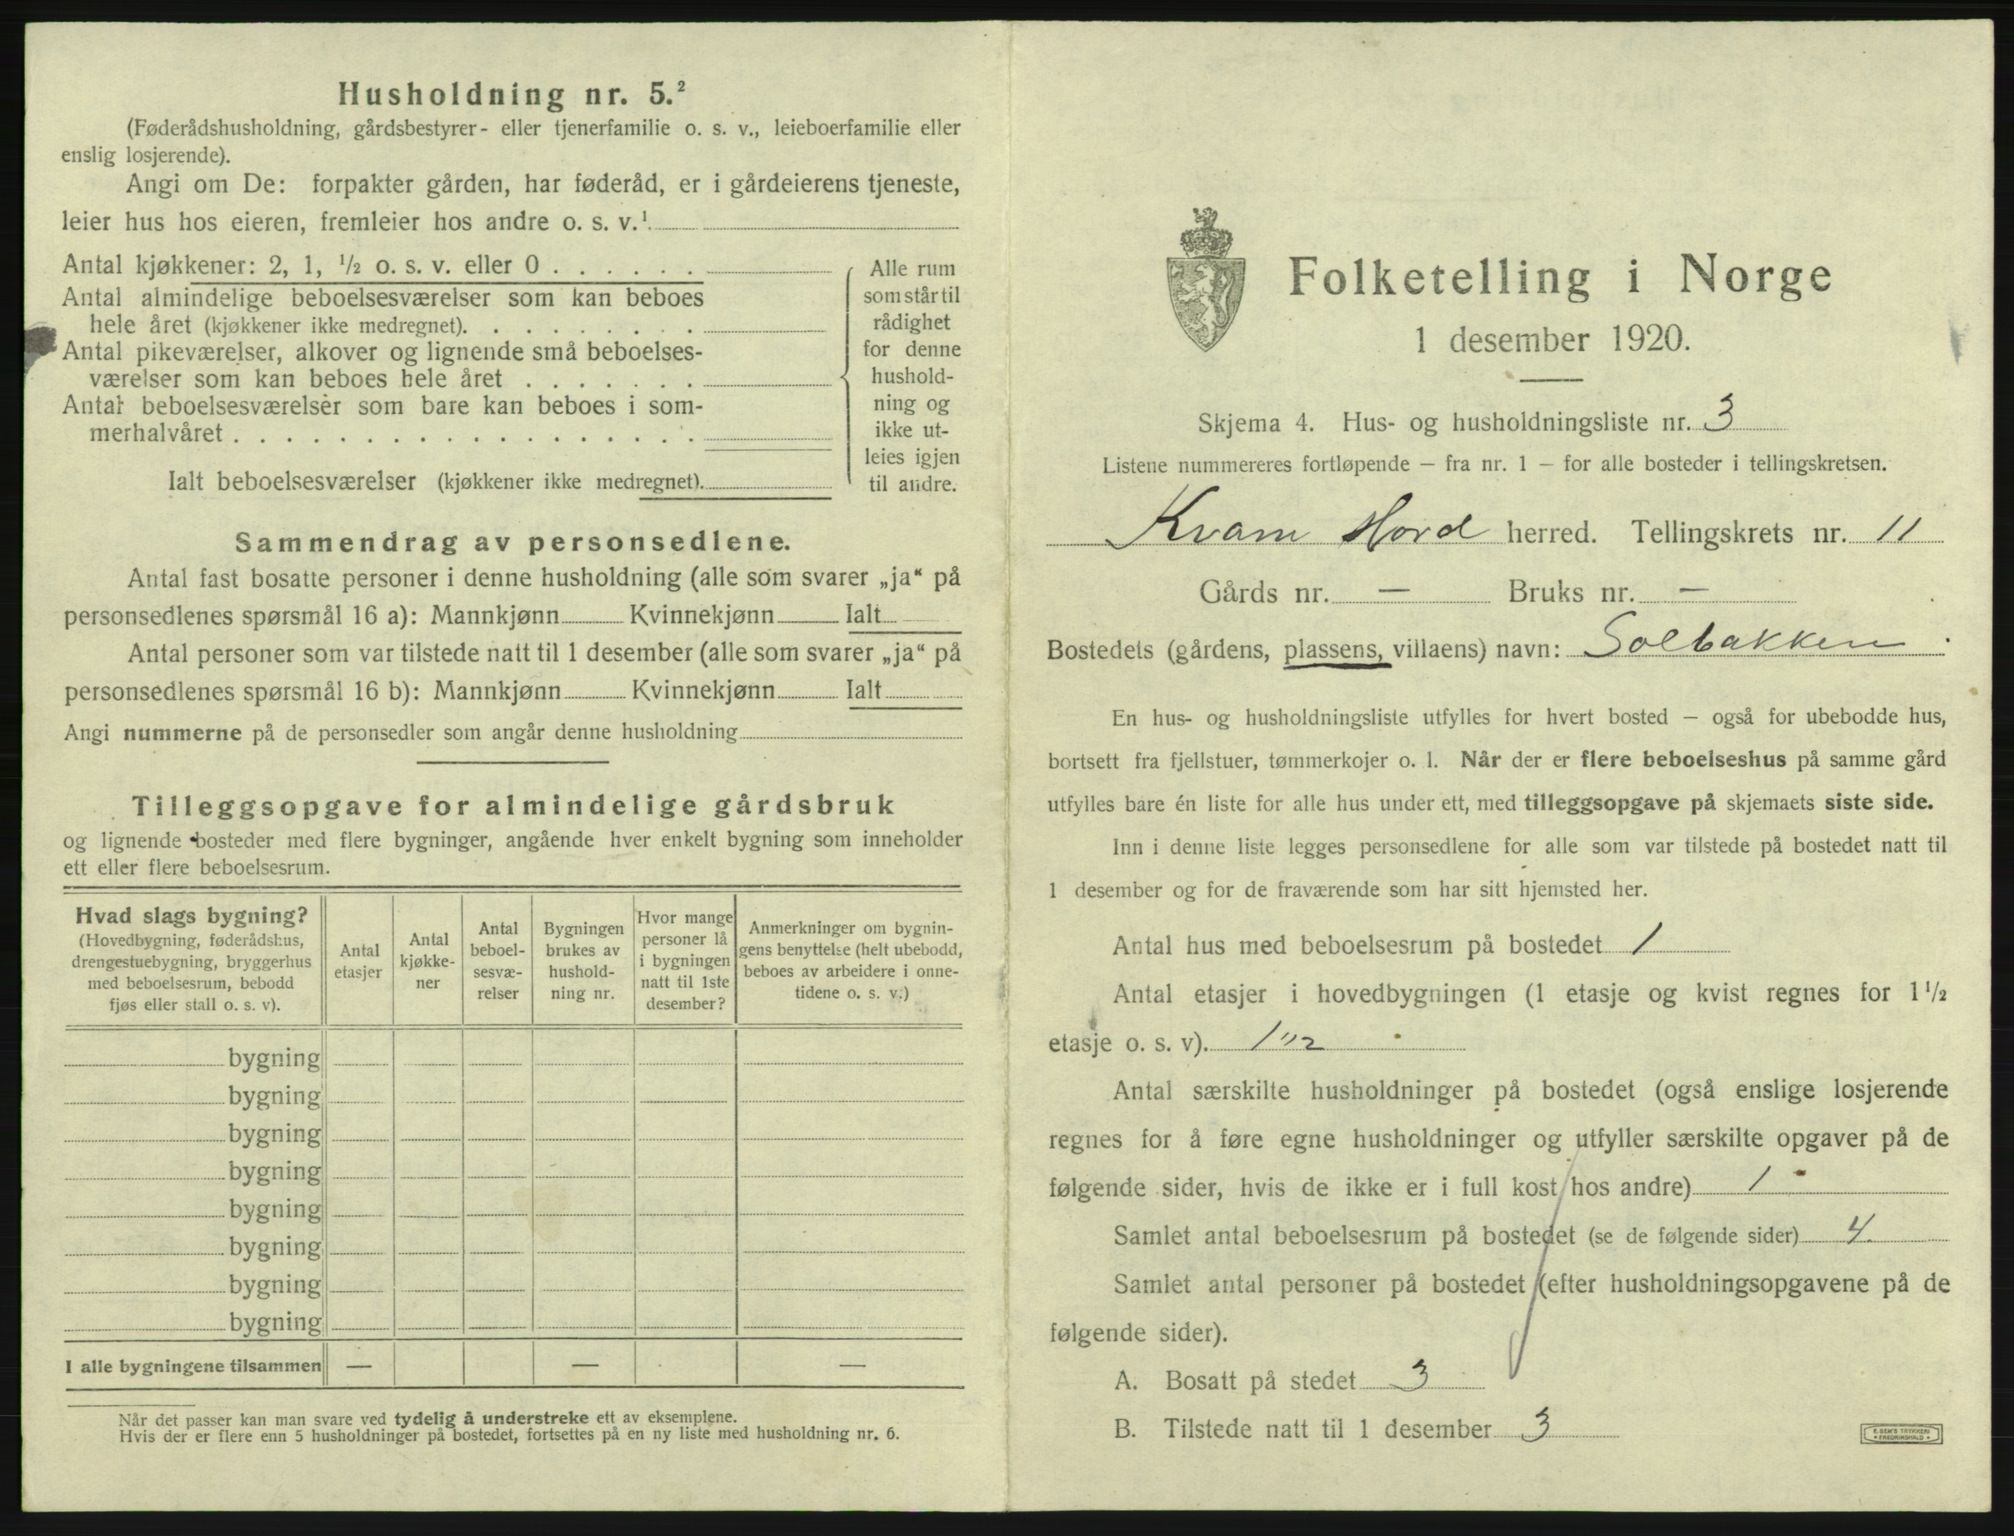 Husholdning nr. 5.²
(Føderådshusholdning, gårdsbestyrer- eller tjenerfamilie o. s. v., leieboerfamilie eller
enslig losjerende).
Angi om De: forpakter gården, har føderåd, er i gårdeierens tjeneste,
leier hus hos eieren, fremleier hos andre o. s. v.¹
Antal kjøkkener: 2, 1, ½ o. s. v. eller 0
Antal almindelige beboelsesværelser som kan beboes
hele året (kjøkkener ikke medregnet).
Antal pikeværelser, alkover og lignende små beboelses-
værelser som kan beboes hele året
Antal beboelsesværelser som bare kan beboes i som-
merhalvåret
Ialt beboelsesværelser (kjøkkener ikke medregnet).
Alle rum
som står til
rådighet
for denne
hushold-
ning og
ikke ut-
leies igjen
til andre.
Sammendrag av personsedlene.
Antal fast bosatte personer i denne husholdning (alle som svarer „ja“ på
personsedlenes spørsmål 16 a): Mannkjønn Kvinnekjønn Ialt
Antal personer som var tilstede natt til 1 desember (alle som svarer „ja“ på
personsedlenes spørsmål 16 b): Mannkjønn Kvinnekjønn Ialt
Angi nummerne på de personsedler som angår denne husholdning
Tilleggsopgave for almindelige gårdsbruk
og lignende bosteder med flere bygninger, angående hver enkelt bygning som inneholder
ett eller flere beboelsesrum.
Hvad slags bygning?
(Hovedbygning, føderådshus,
drengestuebygning, bryggerhus
med beboelsesrum, bebodd
fjøs eller stall o. s. v).
Antal
etasjer
Antal
kjøkke-
ner
Antal
beboel-
sesvæ-
relser
Bygningen
brukes av
hushold-
ning nr.
Hvor mange
personer lå
i bygningen
natt til 1ste
desember?
Anmerkninger om bygnin-
gens benyttelse (helt ubebodd,
beboes av arbeidere i onne-
tidene o. s. v.)
bygning
bygning
bygning
bygning
bygning
bygning
bygning
bygning
I alle bygningene tilsammen — — —
Når det passer kan man svare ved tydelig å understreke ett av eksemplene.
Hvis der er flere enn 5 husholdninger på bostedet, fortsettes på en ny liste med husholdning nr. 6.
Folketelling i Norge
1 desember 1920.
Skjema 4. Hus- og husholdningsliste nr. 3
Listene nummereres fortløpende – fra nr. 1 – for alle bosteder i tellingskretsen.
Kvam Hord herred. Tellingskrets nr. 11
Gårds nr. — Bruks nr. —
Bostedets (gårdens, plassens, villaens) navn: Solbakken
En hus- og husholdningsliste utfylles for hvert bosted – også for ubebodde hus,
bortsett fra fjellstuer, tømmerkojer o. l. Når der er flere beboelseshus på samme gård
utfylles bare én liste for alle hus under ett, med tilleggsopgave på skjemaets siste side.
Inn i denne liste legges personsedlene for alle som var tilstede på bostedet natt til
1 desember og for de fraværende som har sitt hjemsted her.
Antal hus med beboelsesrum på bostedet 1
Antal etasjer i hovedbygningen (1 etasje og kvist regnes for 1½
etasje o. s. v). 1 1/2
Antal særskilte husholdninger på bostedet (også enslige losjerende
regnes for å føre egne husholdninger og utfyller særskilte opgaver på de
følgende sider, hvis de ikke er i full kost hos andre) 1
Samlet antal beboelsesrum på bostedet (se de følgende sider) 4
Samlet antal personer på bostedet (efter husholdningsopgavene på de
følgende sider).
A. Bosatt på stedet 3
B. Tilstede natt til 1 desember 3
E. SEM'S TRYKKERI
FREDRIKSHALD